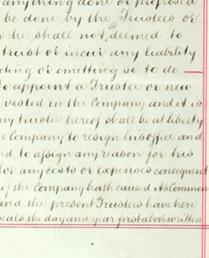 anything done or proposed
be done by the Trustees or
he shall not deemed to
trust or incur any liability
acting or omitting so to do
to appoint a Trustee or new
vested in the Company and it is
any trustee hereof shall be at liberty
Company to resign his office and
and to assign any reason for his
for any costs or expenses consequent
of the Company hath caused its Common
and the present Trustees have here
seals the day and year first above written